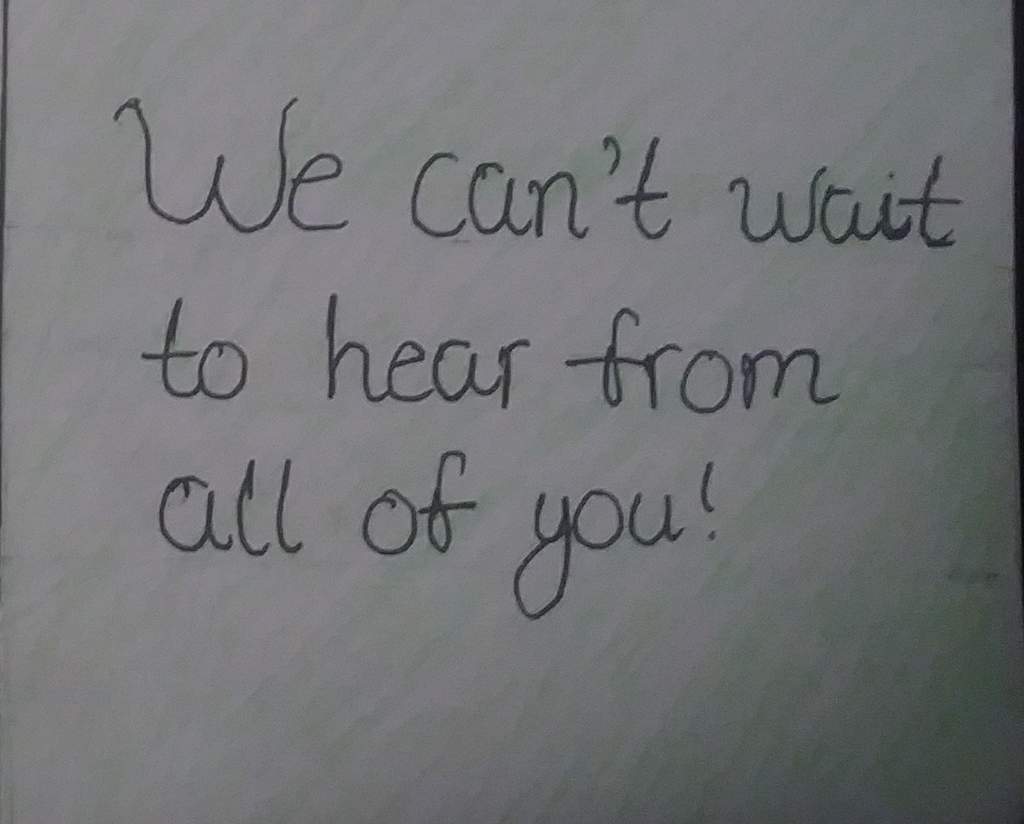 We can't wait
to hear from
all of you!